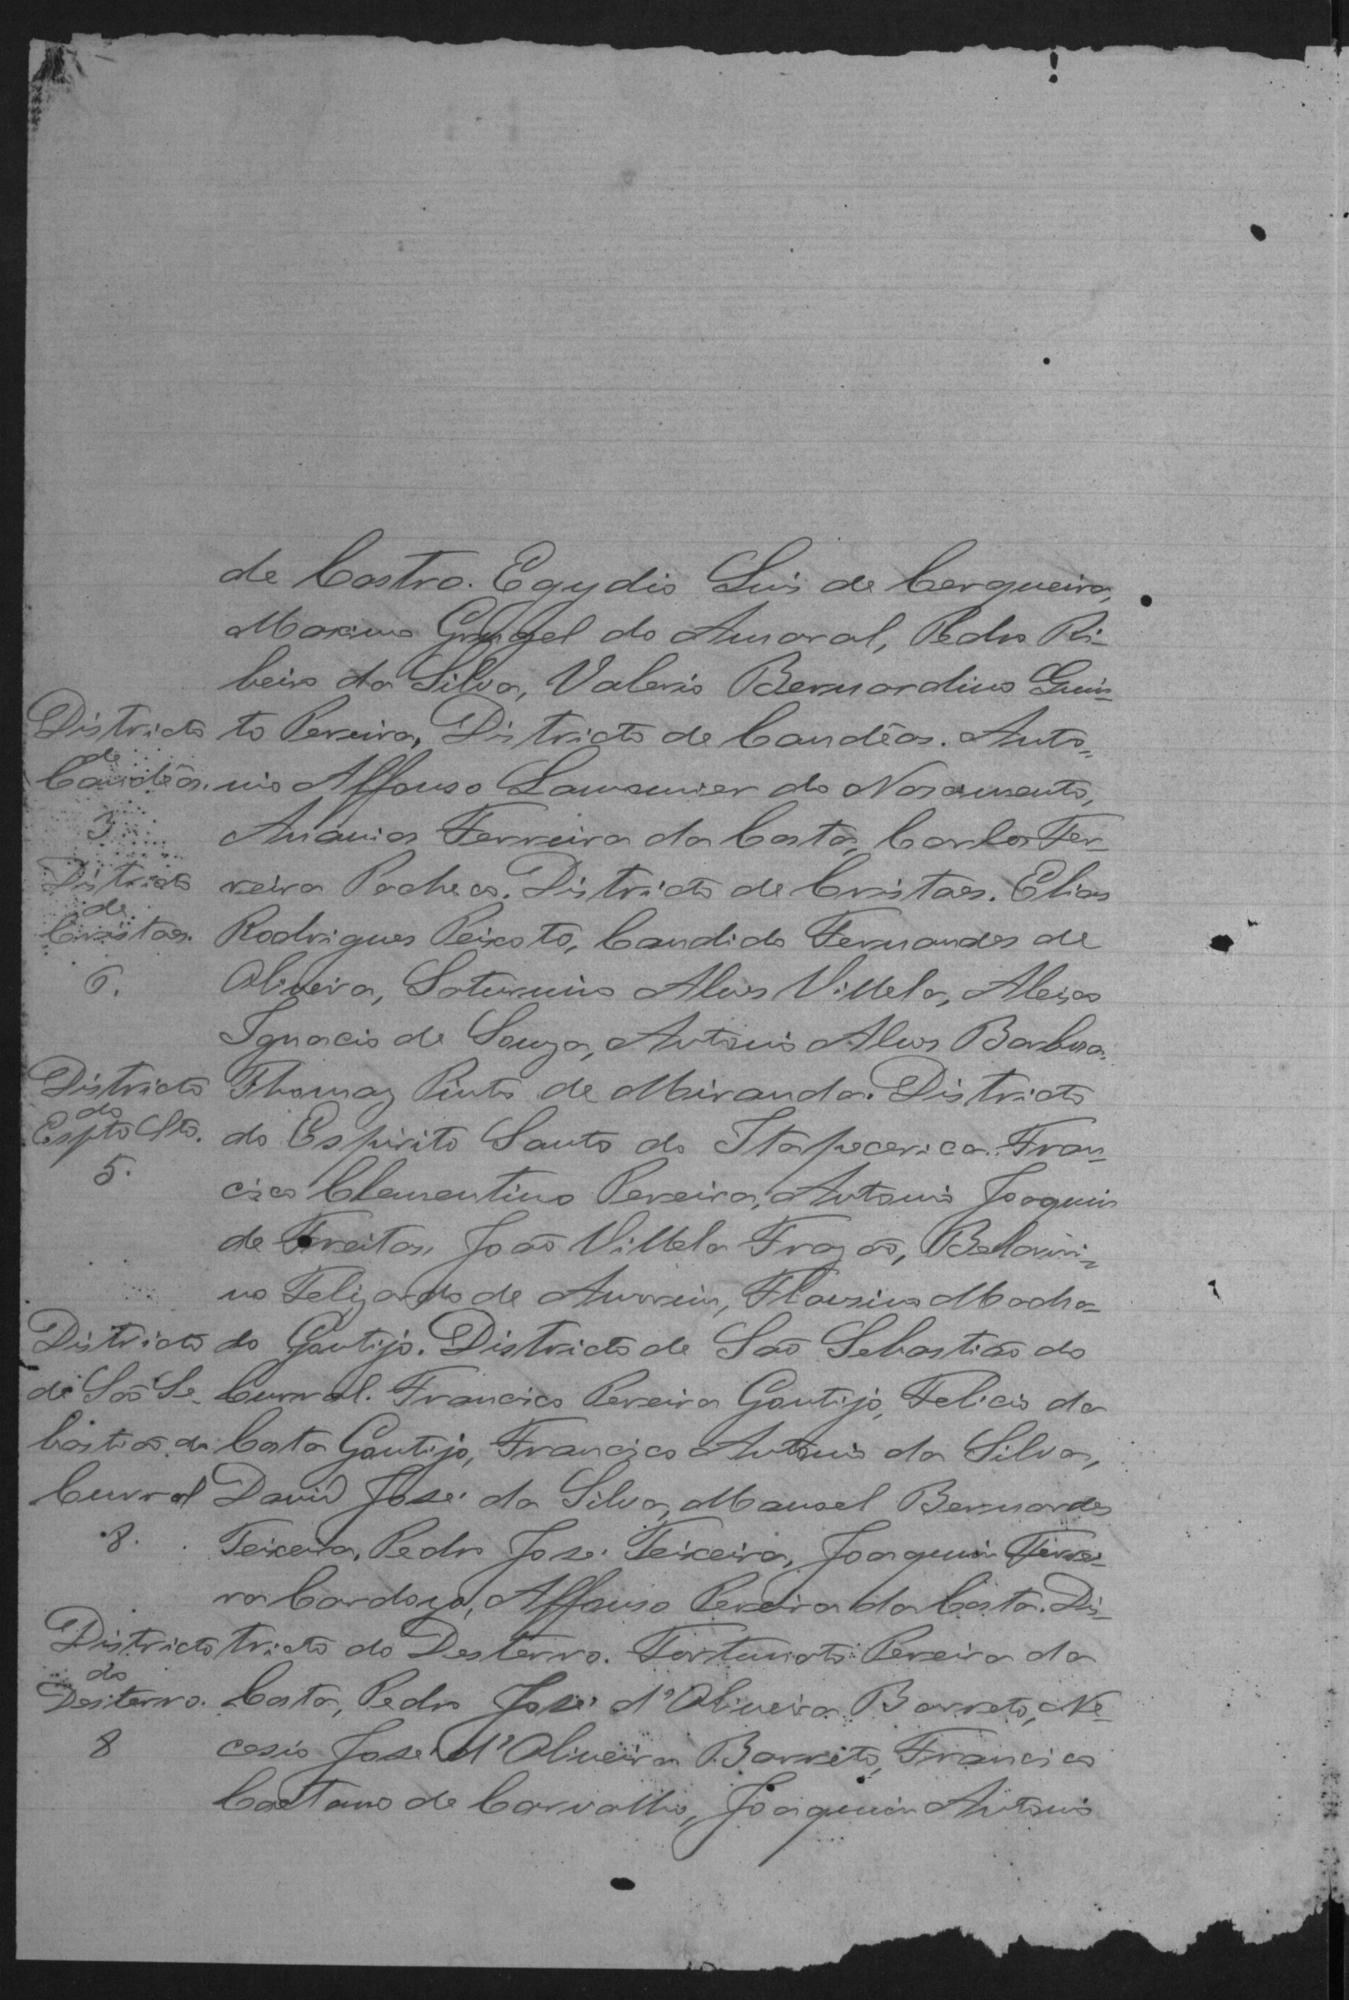 de Castro. Egydio Luis de Cerqueira,
Maximo Gurgel do Amaral, Pedro Ri-
beiro da Silva, Valerio Bernardino
Districto
de
Candêas.
3
to Pereira, Districto de Candêas. Anto-
nio Affonso Lamounier do Nascimento,
Ananias Ferreira da Costa, Carlos Fer-
Districto
de
Cristaes.
6.
reira Pacheco. Districto de Cristaes. Elias
Rodrigues Peixoto, Candido Fernandes de
Oliveira, Saturnino Alves Villela, Aleixo
Ignacio de Souza, Antonio Alves Barbosa,
Districto
do
Espto Sto.
5.
Thomaz Pinto de Miranda. Districto
do Espirito Santo do Itapecerica. Fran-
cisco Clementino Pereira, Antonio Joaquim
de Freitas, João Villela Frazão, Belarmi-
no Felizardo de Amorim, Flausino Macha-
Districto
de São Se-
bastião do
Curral
8.
do Gontijo. Districto de São Sebastião do
Curral. Francisco Pereira Gontijo, Felicio da
Costa Gontijo, Francisco Antonio da Silva,
David José da Silva, Manoel Bernardes
Teixeira, Pedro José Teixeira, Joaquim Ferrei-
ra Cardozo, Affonso Pereira da Costa. Dis-
Districto
do
Desterro.
8
tricto do Desterro. Fortunato Pereira da
Costa, Pedro José d'Oliveira Barreto, Ne-
cesio José d'Oliveira Barreto, Francisco
Caetano de Carvalho, Joaquim Antonio